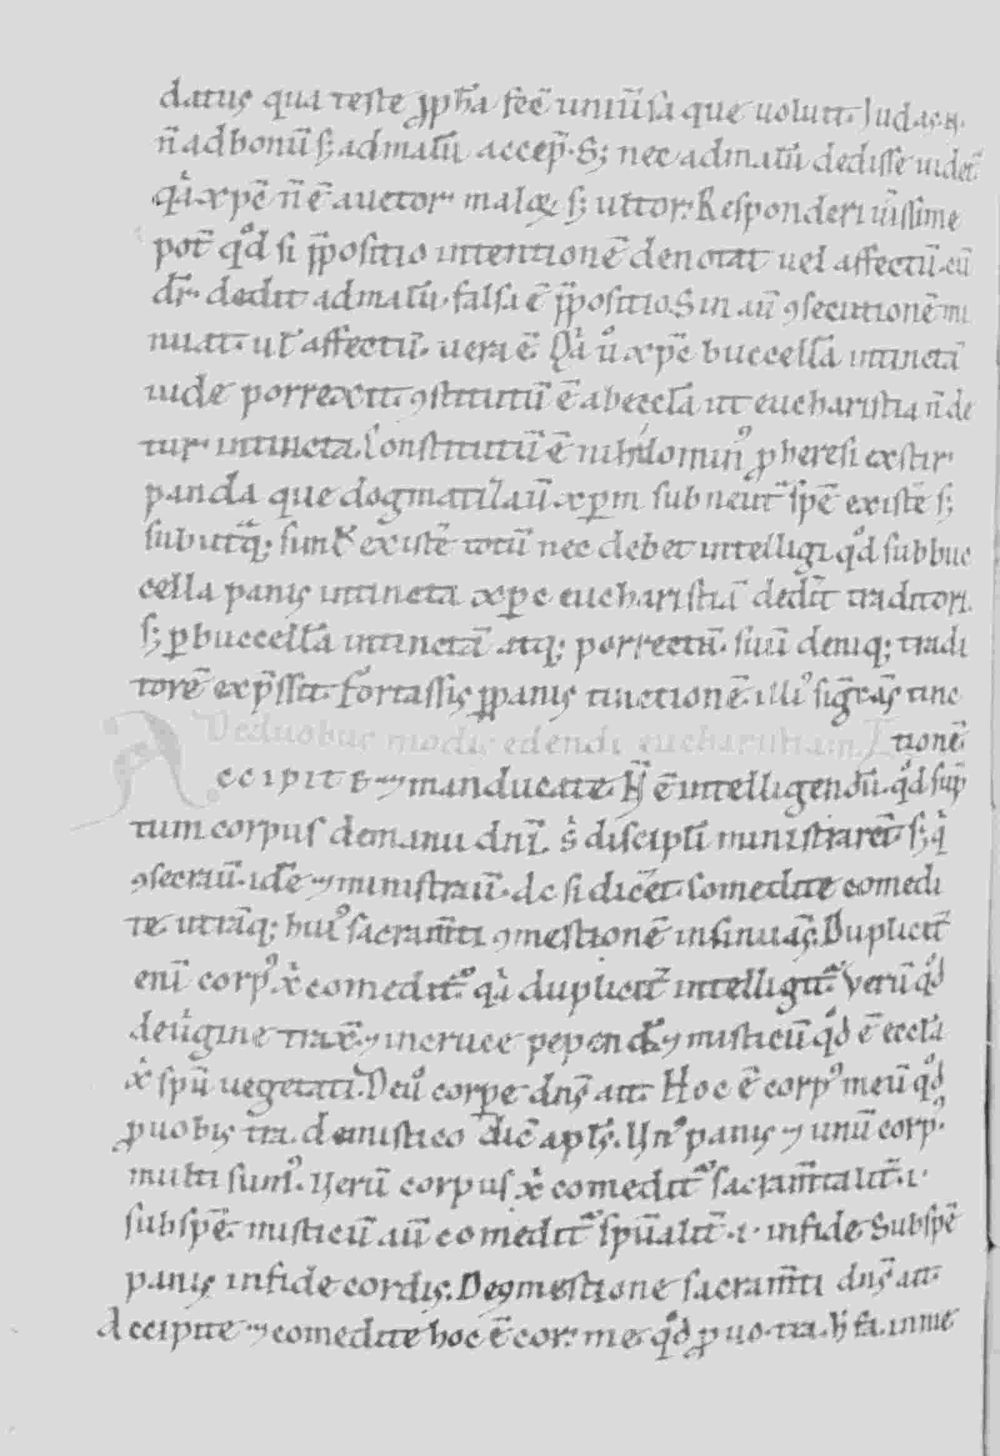 datus qua teste ꝓpħa fec̄ uniũsa que uoluit. Judas .n.
n̄ ad bonū s; ad malū accep̄. S; nec ad malū dedisse uidet̄
qͥa xp̄c n̄ ē auctor maloꝝ s; ultor. Responderi ūissime
pot̄ qͦd si p̄positio intentionē denotat uel affectū. cū
dr̄ dedit ad malū. falsa ē p̄positio. Sin aū ꝯsecutionē in
nuat. ul̄ affectū. uera ē. Qͥa ū xp̄c buccellā intinctā
iude porrexit. ꝯstitutū ē ab eccl̄a ut eucharistia n̄ de
tur intincta. Constitutū ē nihilominꝰ ꝓ heresi exstir
panda que dogmatizaū xp̄m sub neut̄ sp̄e existē s;
sub utͣq;. simul existē totū nec debet intelligi qͦd sub buc
cella panis intincta xp̄c eucharistiā dedit traditori.
s; ꝑ buccellā intinctā atq; porrectā. suū deniq; tradi
torē exp̄ssit. fortassis ꝑ panis tinctionē. illiꝰ sig̃cās tinc
De duobus modis edendi eucharistiam. tionē.
Accipite ⁊ manducate. H̄ ē intelligendū. qͦd sūp
tum corpus de manu dn̄i. s̄ discipl̄i ministrarent. s; qͥ
ꝯsecrauit. idē ⁊ ministrauit. ac si dic̄et. comedite comedi
te. utrāq; huiꝰ sacram̄ti ꝯmestionē insinuās. Duplicit̄
enī corpꝰ xͥ comeditꝰ. qͥa duplicit̄ intelligitꝰ. Verū qͦd
de uͥgine traxit ⁊ in cruce pependit. ⁊ misticū qͦd ē eccl̄a
xͥ spū uegetata. De uͦ corpe dn̄s ait. Hoc ē corpꝰ meū qͦd
ꝓ uobis tra. de mistico dic̄ apl̄s. Unꝰ panis ⁊ unū corpꝰ.
multi sumꝰ. Verū corpus xͥ comeditꝰ sacram̄talit̄ .i.
sub sp̄e. misticū aū comeditꝰ sp̄ualit̄ .i. in fide. Sub sp̄e
panis in fide cordis. De ꝯmestione sacram̄ti dn̄s ait.
Accipite ⁊ comedite hoc ē cor. me. qͦd ꝓ uo. tra. h̄ fa. in me